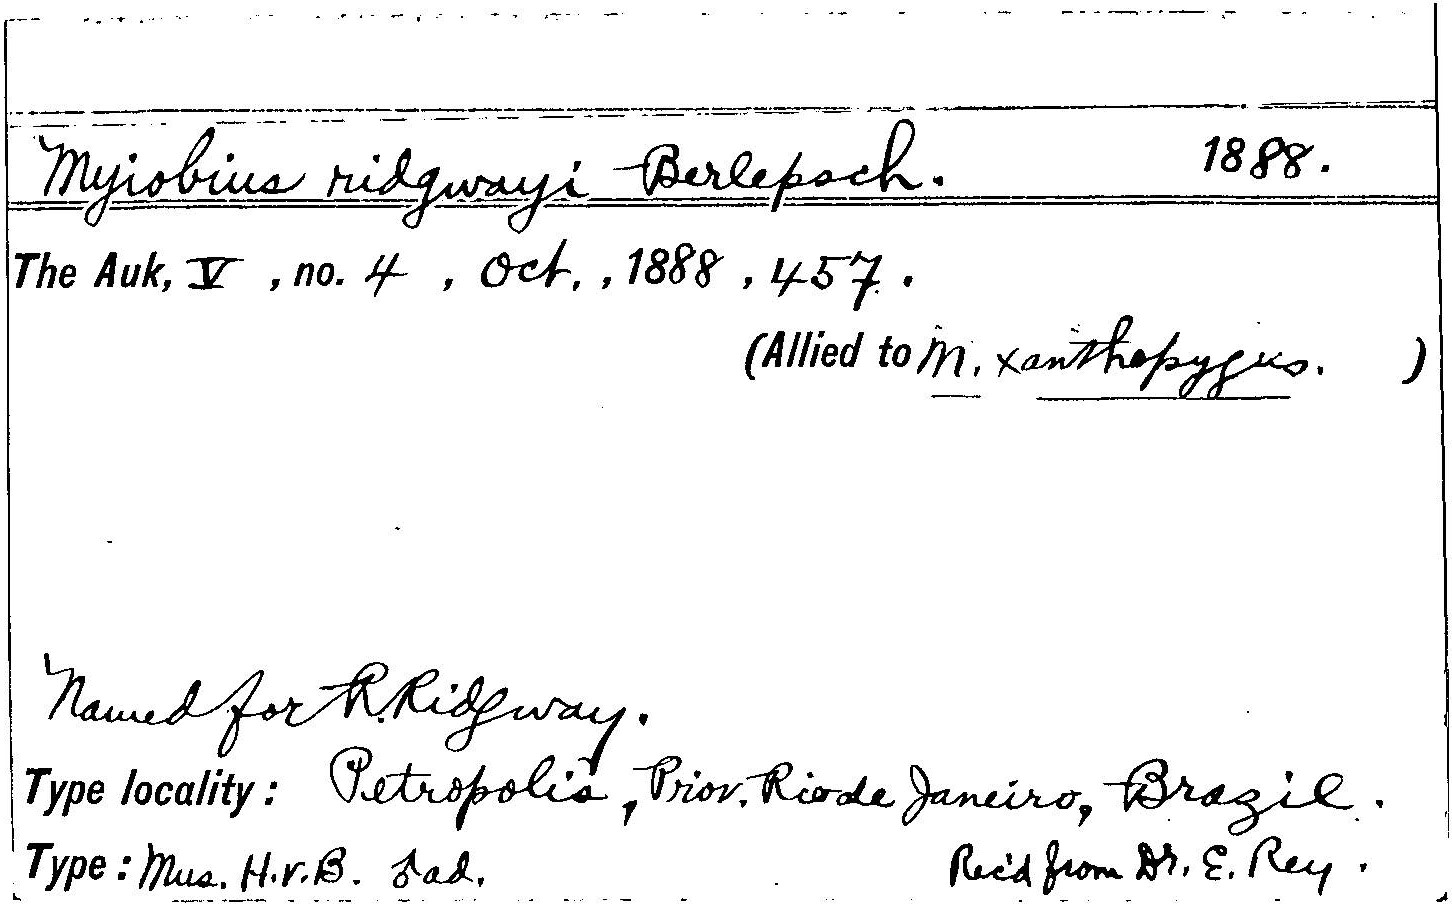 Myiobius ridgwayi Berlepsch. 1888.
The Auk, V, no. 4, Oct., 1888, 457.
(Allied to M. xanthopygus. )
Named for R. Ridgway.
Type locality: Petropolis, Prov. Rio de Janeiro, Brazil.
Type: Mus. H.v.B. ad. Rec'd from Dr. E. Rey.